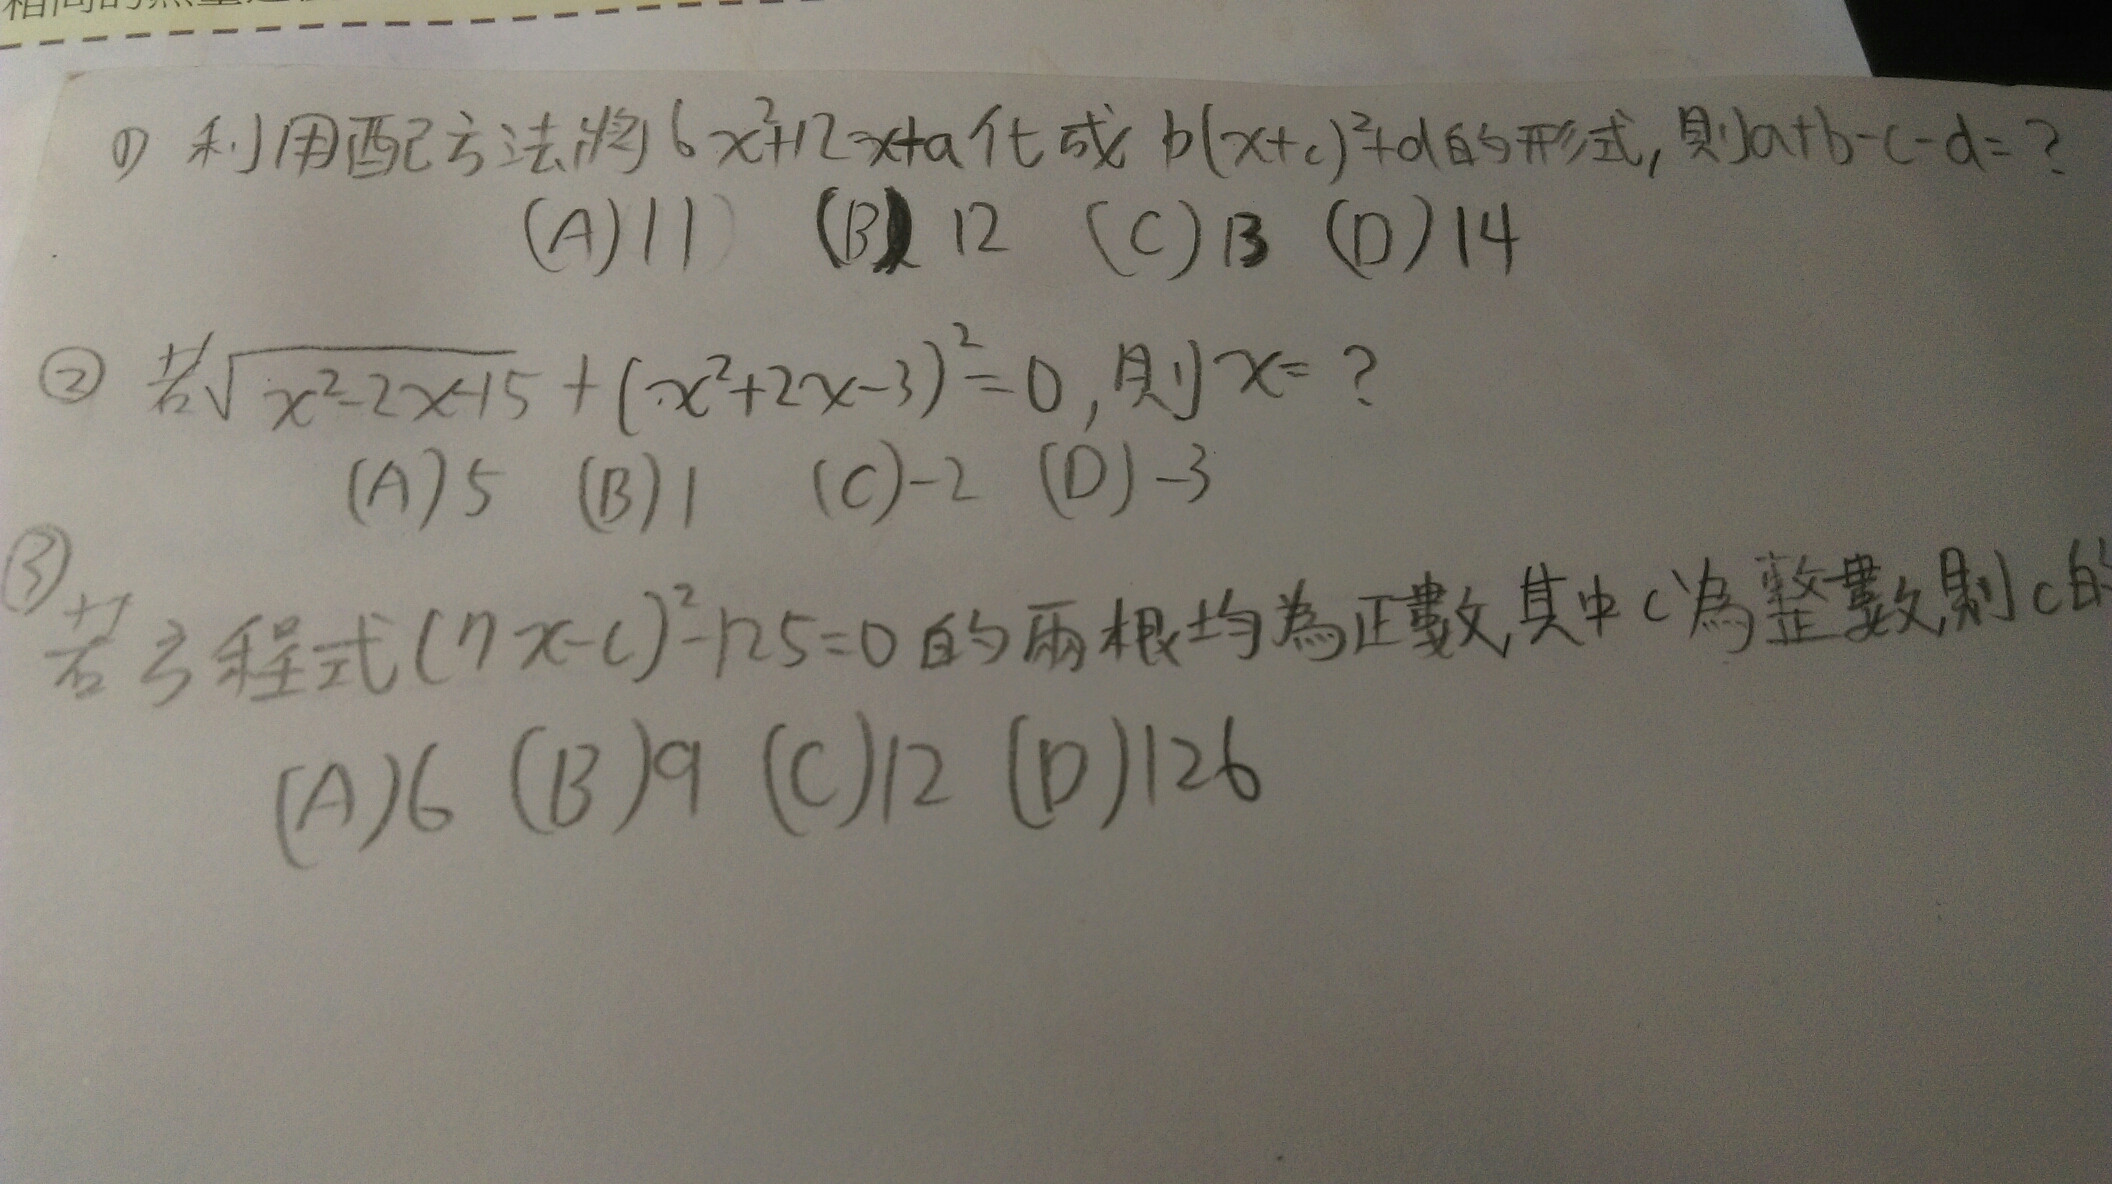 ① 利用配方法將6x²+12x+a化成 b(x+c)²+d的形式,則a+b-c-d=?
(A)11 (B) 12 (C)13 (D)14
② 若√x²-2x-15 + (x²+2x-3)²=0,則x=?
(A)5 (B)1 (C)-2 (D)-3
③
若方程式(7x-c)²-125=0的兩根均為正數,其中c為整數,則c的
(A)6 (B)9 (C)12 (D)126